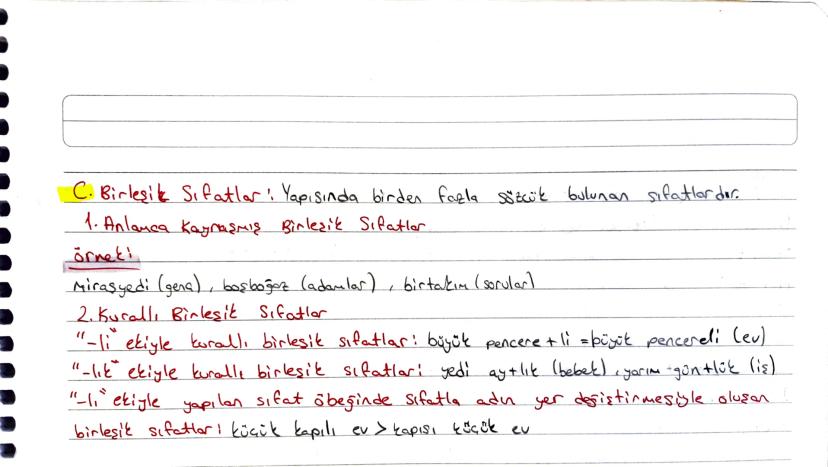 C. Birleşik Sıfatlar: Yapısında birden fazla sözcük bulunan sıfatlardır.
1. Anlamca Kaynaşmış Birleşik Sıfatlar
örnek:
Mirasyedi (genç), boşboğaz (adamlar), birtakım (sorular)
2. Kurallı Birleşik Sıfatlar
"-li" ekiyle kurallı birleşik sıfatlar: büyük pencere+li = büyük pencereli (ev)
"-lık" ekiyle kurallı birleşik sıfatlar: yedi ay+lık (bebek), yarım-gün+lük (iş)
"-lı" ekiyle yapılan sıfat öbeğinde sıfatla adın yer değiştirmesiyle oluşan
birleşik sıfatlar: küçük kapılı ev > kapısı küçük ev